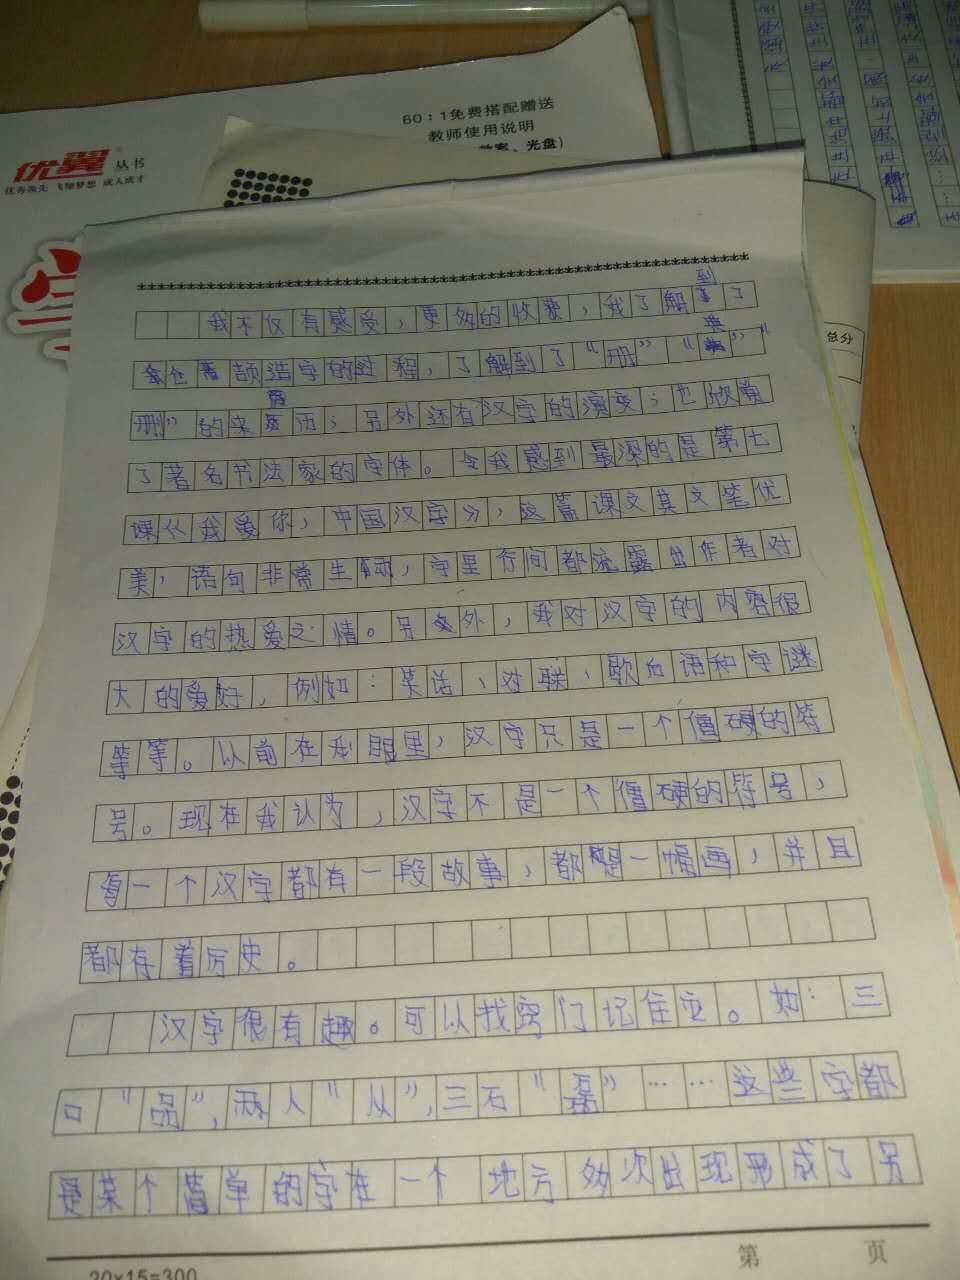 60：1免费搭配赠送
教师使用说明
教案、光盘)
优翼丛书
优秀领先 飞翔梦想 成人成才
总分
我不仅有感受，更多的收获，我了解到了
仓颉造字的过程，了解到了“册”“典”“
删”的来历；另外还有汉字的演变；也欣赏
了著名书法家的字体。令我感到最深的是第七
课《我爱你，中国汉字》，这篇课文其文笔优
美，语句非常生动，字里行间都流露出作者对
汉字的热爱之情。另外，我对汉字的内容很
大的爱好，例如：笑话、对联、歇后语和字谜
等等。以前在我眼里，汉字只是一个僵硬的符
号。现在我认为，汉字不是一个僵硬的符号，
每一个汉字都有一段故事，都是一幅画，并且
都存着历史。
汉字很有趣。可以找窍门记住它。如：三
口“品”，两人“从”，三石“磊”……这些字都
是某个简单的字在一个地方多次出现形成了另
20×15=300
第 页